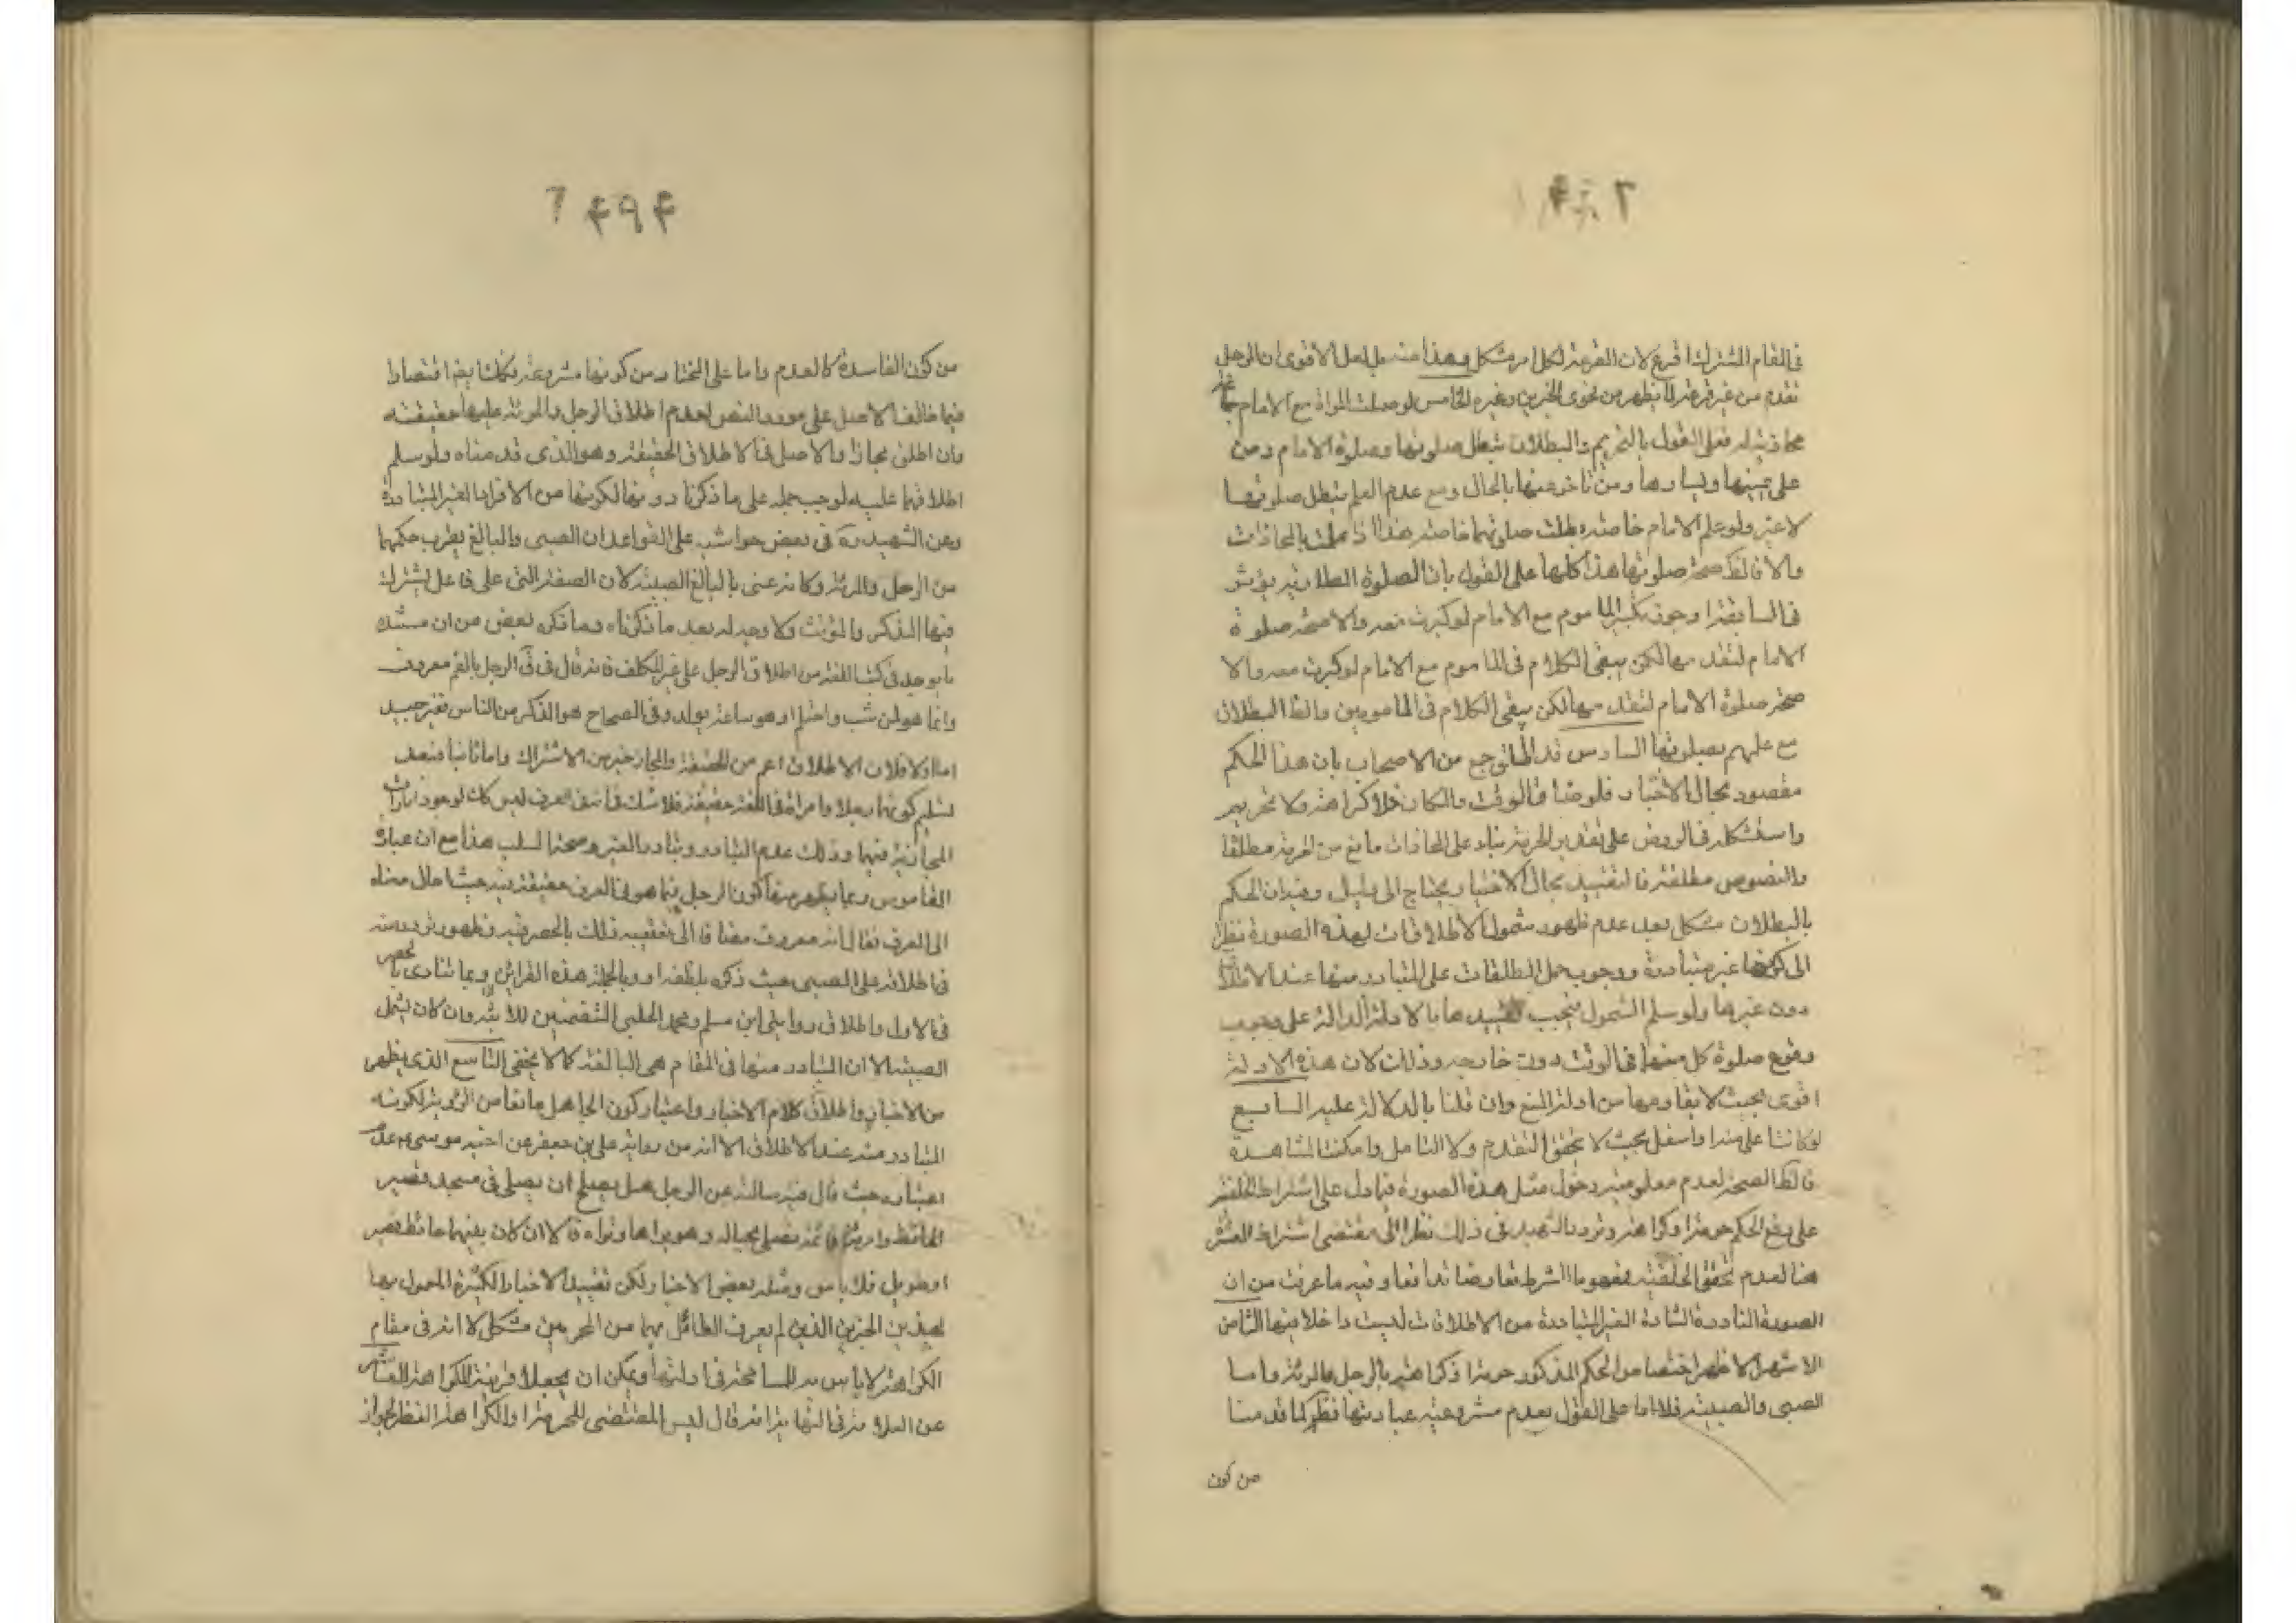 في المقام المشترك اقرع لان القرعة لكل امر مشكل وهذا منه بل لعل الاقوى ان الرجل
تقدم من غير قرعة لما يظهر من فحوى الخبرين وغيره الخامس لو صلت المراة مع الامام
محاذية له فعلى القول بالتحريم والبطلان تبطل صلوتها وصلوة الامام ومن
على يمينها ويسارها ومن تاخر عنها بالحال ومع عدم العلم تبطل صلوتها
لا غير ولو علم الامام خاصة بطلت صلوتهما خاصة هذا اذا علمت بالمحاذات
والا فالظ صحة صلوتها هذا كلها على القول بان الصلوة الطارية يؤثر
في السابقة او جوز تكبير الماموم مع الامام لو كبرت معه والا صحة صلوة
الامام لتقدمها لكن يبقى الكلام في الماموم مع الامام لو كبرت معه والا
صحة صلوة الامام لتقدمها لكن يبقى الكلام في المامومين والظ البطلان
مع علمهم بصلوتها السادس قد جمع من الاصحاب بان هذا الحكم
مقصود بحال الاختيار فلو ضاق الوقت والمكان فلا كراهة ولا تحريم
واستشكله في الروض على تقدير الحرمة بناء على المحاذات مانع من الحرمة مطلقا
والنصوص مطلقة فالتقييد بحال الاختيار يحتاج الى دليل وفيه ان الحكم
بالبطلان مشكل بعد عدم ظهور شمول الاطلاقات لهذه الصورة نظرا
الى كونها غير متبادرة ووجوب حمل المطلقات على المتبادر منها عند الاطلاق
دون غيرها ولو سلم الشمول فيجب تقييدها بالادلة الدالة على وجوب
وقوع صلوة كل منهما في الوقت دون خارجه وذلك لان هذه الادلة
اقوى بحيث لا يقاومها من ادلة المنع وان قلنا بالدلالة عليه السابع
لو كانتا على منه او اسفل بحيث لا تحقق التقدم ولا التامل وامكنت المشاهدة
فالظ الصحة لعدم معلومية دخول مثل هذه الصورة فيما دل على اشتراط الخلفية
على رفع الحكم حرمة او كراهة وتردد الشهيد في ذلك نظرا الى مقتضى اشتراط العشرة
هنا لعدم تحقق الخلفية مفهوما الشرط تعارضا تدافعا وفيه ما عرفت من ان
الصورة النادرة الشاذة الغير المتبادرة من الاطلاقات ليست داخلا فيها الثامن
الاشهر الاظهر اختصاص الحكم المذكور حرمة او كراهة بالرجل والمرئة واما
الصبي والصبية فلا اما على القول بعدم مشروعية عبادتها فظ لما قدمنا
من كون
من كون الفاسدة كالعدم واما على المختار من كونها مشروعة فكانت يقع اقتصارا
فيما خالف الاصل على مورد النص لعدم اطلاق الرجل والمرئة عليها حقيقة
وان اطلق مجازا والاصل في الاطلاق الحقيقة وهو الذي قدمناه ولو سلم
اطلاقهما عليه لوجب حمله على ما ذكرنا دونها لكونها من الافراد الغير المتبادرة
وعن الشهيد ره في بعض حواشيه على القواعد ان الصبي والبالغ يقرب حكمهما
من الرجل والمرئة وكانه عنى بالبالغ الصبية لان الصفة التي على فاعل يشترك
فيها المذكر والمؤنث ولا وجه له بعد ما ذكرناه وما ذكره بعض من ان مستنده
ما يوجد في كتب اللغة من اطلاق الرجل على غير المكلف فانه قال في ق الرجل بالضم معروف
وانما هو لمن شب واحتلم او هو ساعة يولد وفي الصحاح هو الذكر من الناس فغير جيد
اما اولا فلان الاطلاق اعم من الحقيقة والمجاز خير من الاشتراك واما ثانيا فبعد
تسليم كونهما رجلا وامراة في اللغة حقيقة فلا شك في ان في العرف ليس كك لوجود امارات
المجازية فيهما وذلك عدم التبادر وتبادر الغير وصحة السلب هذا مع ان عبارة
القاموس ربما يظهر منها كون الرجل فيما هو في العرف حقيقة فيه حيث احال معناه
الى العرف فقال انه معروف مضافا الى تعقيبه ذلك بالحصر فيه وظهور تردده منه
في اطلاقه على الصبي حيث ذكره بلفظة او وبالجملة هذه القرائن ربما تنادى بالحصر
في الاول واطلاق روايتي ابن مسلم ومحمد الحلبي المتضمنين للابنة وان كان يشمل
الصبية الا ان المتبادر منها في المقام هي البالغة كما لا يخفى التاسع الذي يظهر
من الاخبار واطلاق كلام الاخيار واعتبار كون الحاهل مانعا من الرؤية لكونه
المتبادر منه عند الاطلاق الا انه من رواية علي بن جعفر عن اخيه موسى ع عدم
اعتباره حيث قال فيه سالته عن الرجل هل يصلح ان يصلي في مسجد قصير
الحائط وامرئة قائمة تصلي بحياله وهو يراها وتراه قال ان كان بينهما حائط قصير
او طويل فلا باس ومثله بعض الاخبار ولكن تقييد الاخبار الكثيرة المعمول بها
بهذين الخبرين الذين لم يعرف القائل بهما من المحرمين مشكل الا انه في مقام
الكراهة لا باس به للمسامحة في ادلتها ويمكن ان يجعلا قرينة للكراهة العاشر
عن العلامة في النهاية انه قال ليس المقتضى للتحريم او الكراهة النظر لجواز